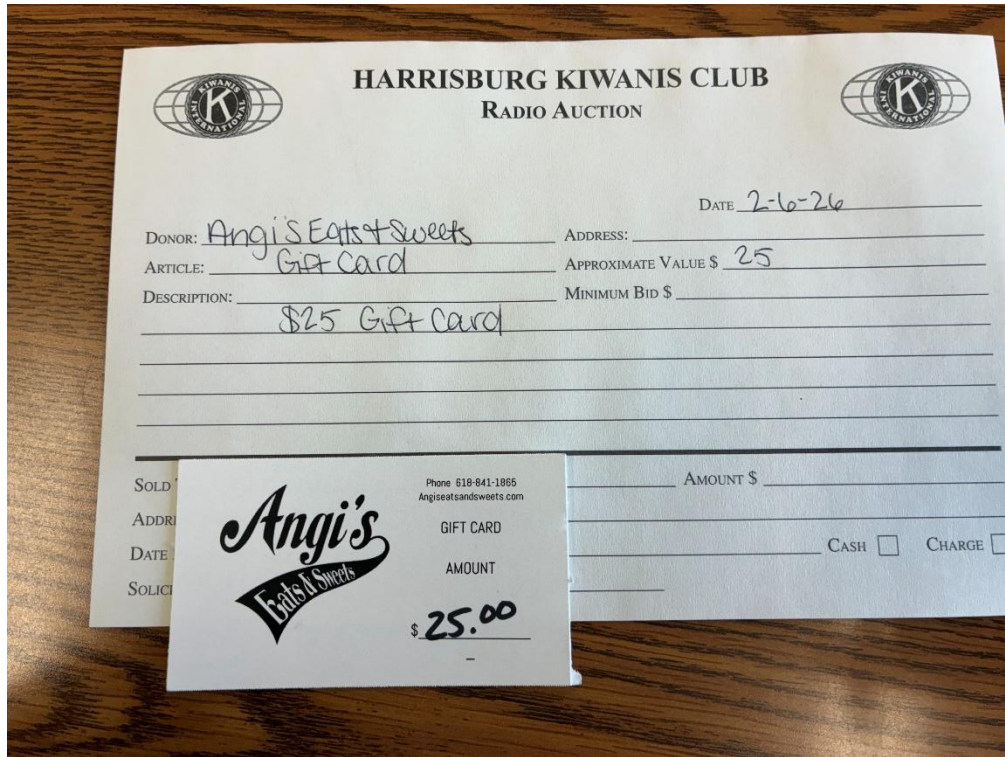 HARRISBURG KIWANIS CLUB
RADIO AUCTION
KIWANIS
K
INTERNATIONAL
KIWANIS
K
INTERNATIONAL
DATE 2-6-26
DONOR: Angi's Eats & Sweets ADDRESS:
ARTICLE: Gift Card APPROXIMATE VALUE $ 25
DESCRIPTION: MINIMUM BID $
$25 Gift Card
SOLD AMOUNT $
ADDR
DATE CASH CHARGE
SOLIC
Angi's
Eats & Sweets
Phone 618-841-1865
Angiseatsandsweets.com
GIFT CARD
AMOUNT
$ 25.00